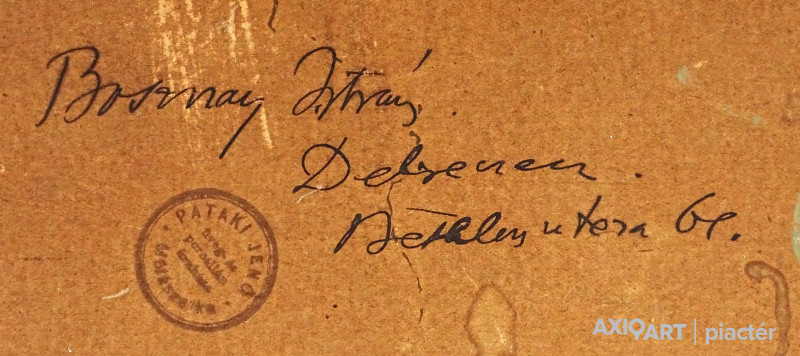 Bosznay István.
Debrecen.
Bethlen utca 61.
PATAKI JENŐ
AXIOART | piactér